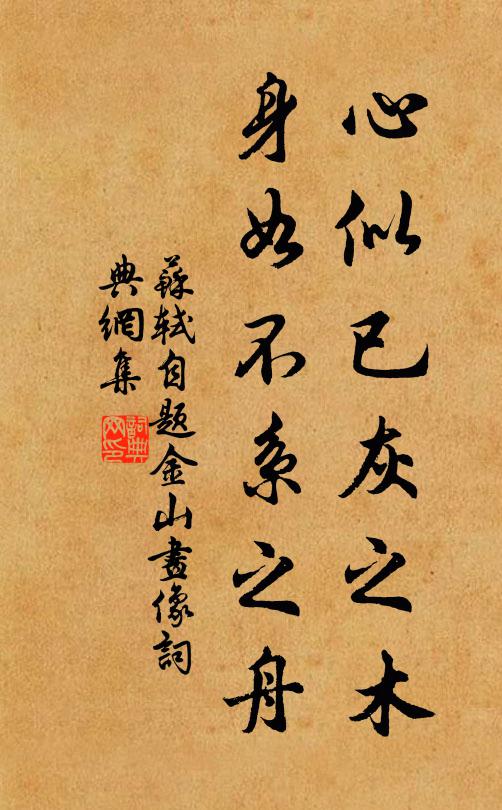 心似已灰之木
身如不系之舟
蘇軾自題金山畫像詞
典網集
詞典網印